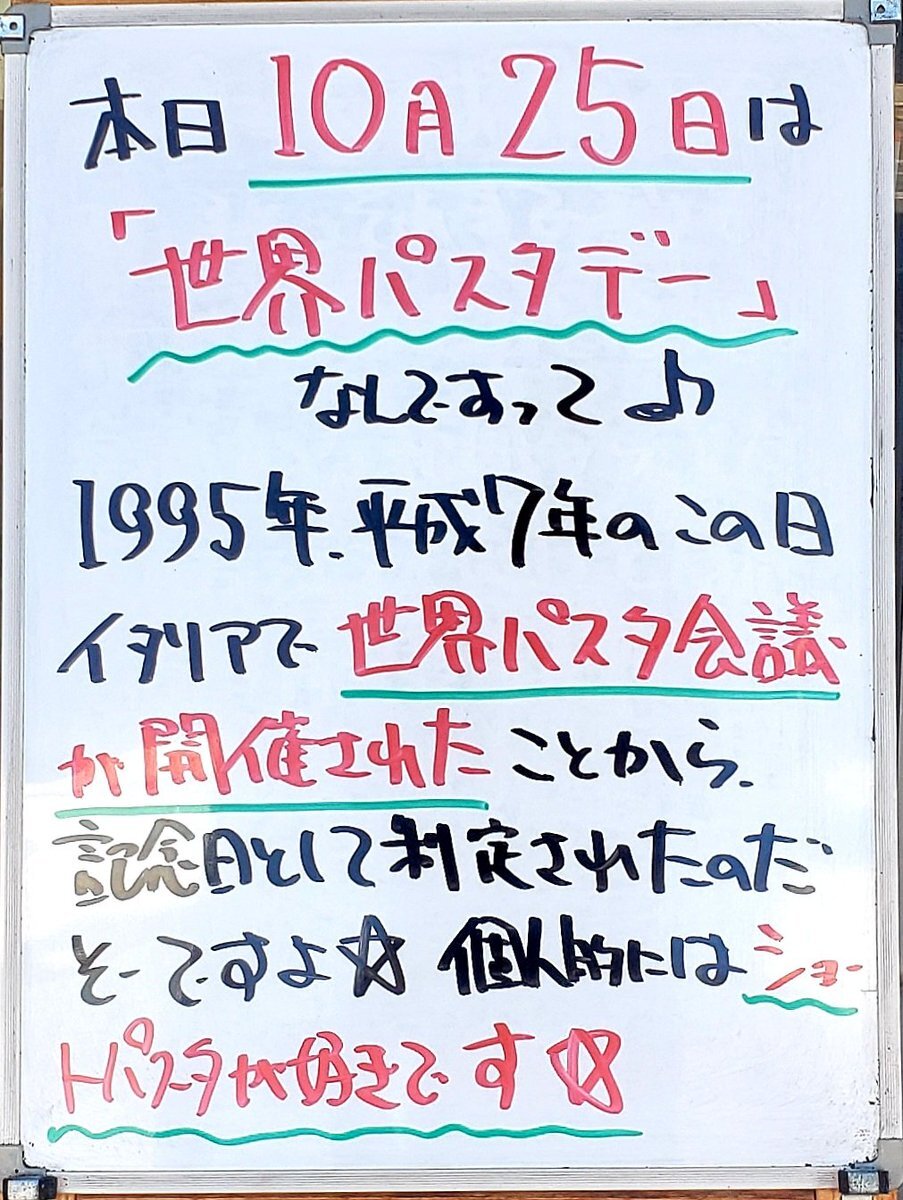 本日10月25日は
「世界パスタデー」
なんですって♪
1995年、平成7年のこの日
イタリアで世界パスタ会議
が開催されたことから、
記念日として制定されたのだ
そーですよ☆ 個人的にはショー
トパスタが好きです☆